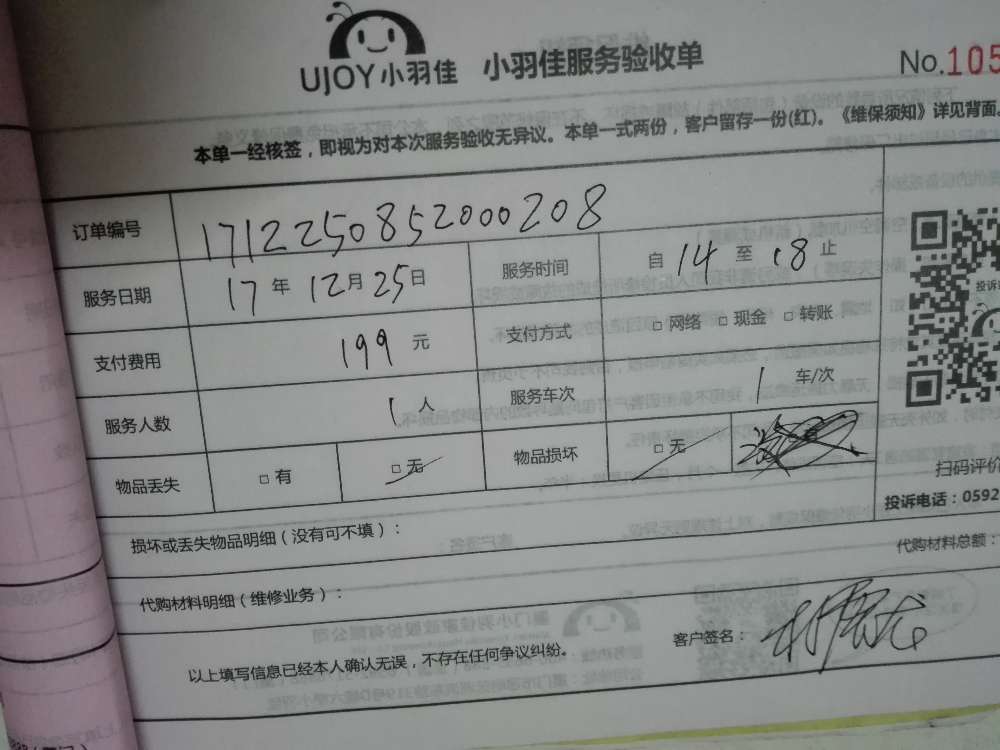 UJOY小羽佳 小羽佳服务验收单 No.105
本单一经核签，即视为对本次服务验收无异议。本单一式两份，客户留存一份(红)。《维保须知》详见背面。
订单编号 1712250852000208
服务日期 17年12月25日 服务时间 自14至18止
支付费用 199元 支付方式 □网络 □现金 □转账
服务人数 1人 服务车次 1车/次
物品丢失 □有 □无 物品损坏 □无
扫码评价
投诉电话：0592
损坏或丢失物品明细（没有可不填）：
代购材料明细（维修业务）： 代购材料总额：
以上填写信息已经本人确认无误，不存在任何争议纠纷。 客户签名：